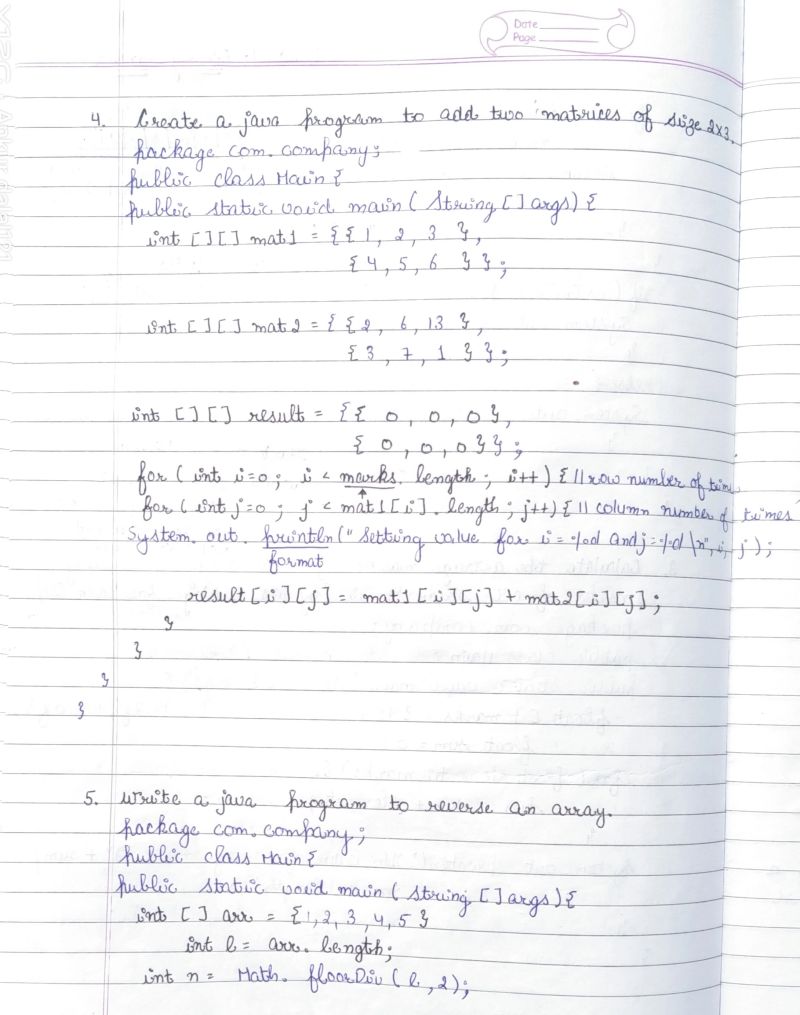 Date
Page
4. Create a java program to add two matrices of size 2x3.
package com.company;
public class Main {
public static void main ( String [ ] args) {
int [ ] [ ] mat 1 = { { 1, 2, 3 },
{ 4, 5, 6 } } ;
int [ ] [ ] mat 2 = { { 2, 6, 13 },
{ 3, 7, 1 } } ;
int [ ] [ ] result = { { 0, 0, 0 },
{ 0, 0, 0 } } ;
for ( int i=0 ; i < marks. length ; i++) { // row number of time
for ( int j=0 ; j < mat 1 [ i ] . length ; j++) { // column number of times
System. out. println (" Setting value for i = %d and j = %d \n", i, j ) ;
format
result [ i ] [ j ] = mat 1 [ i ] [ j ] + mat 2 [ i ] [ j ] ;
}
}
}
}
5. Write a java program to reverse an array.
package com. company ;
public class Main {
public static void main ( string [ ] args) {
int [ ] arr = { 1, 2, 3, 4, 5 }
int l = arr. length;
int n = Math. floorDiv ( l , 2) ;